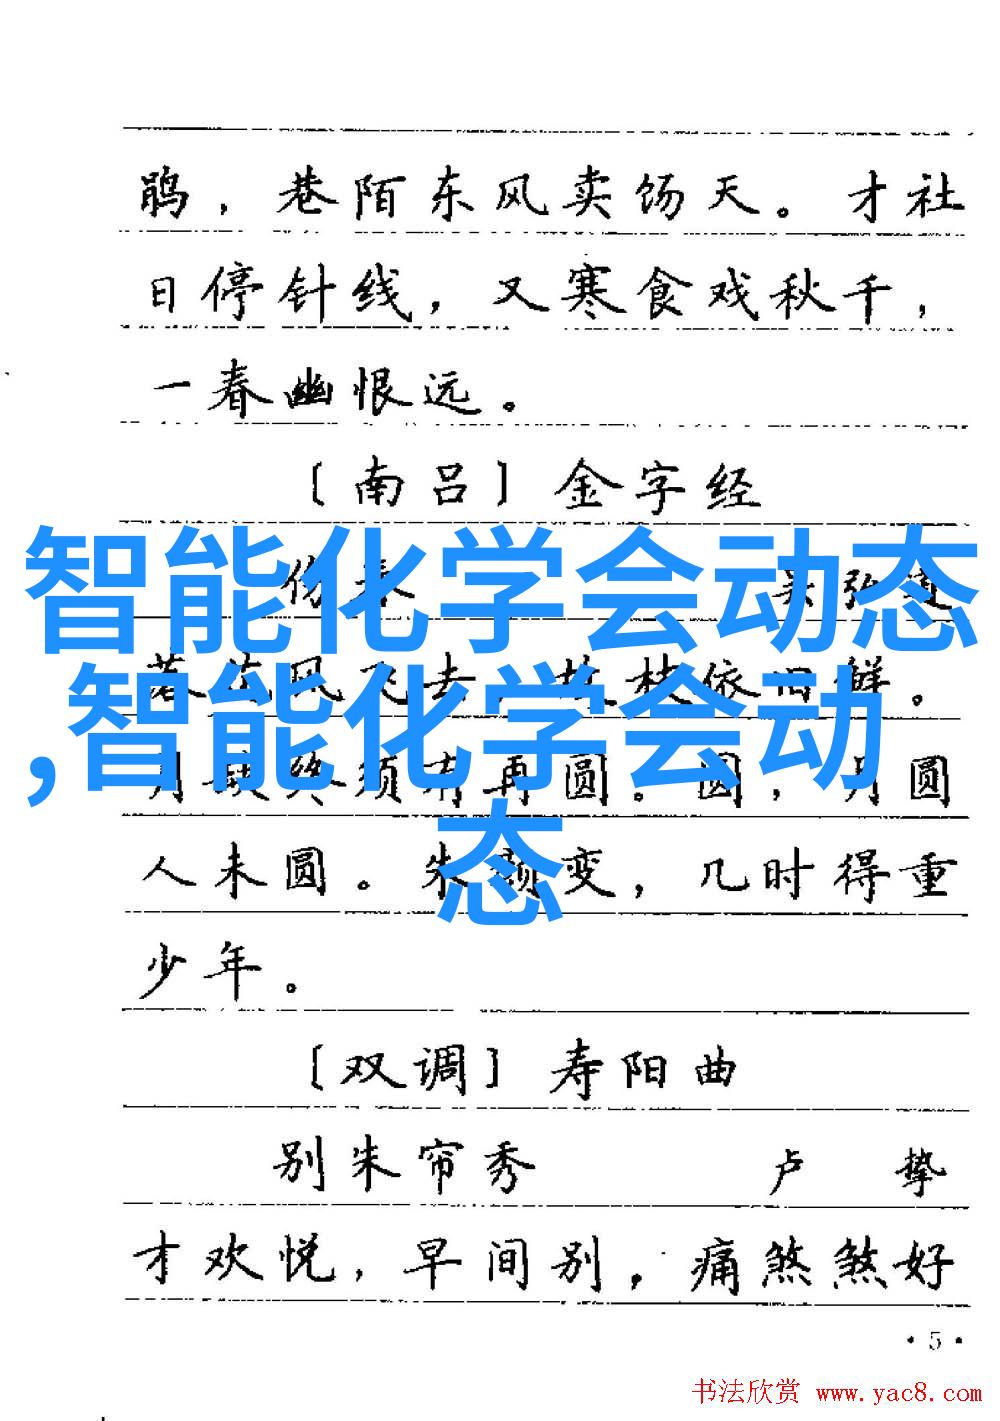 鹃，巷陌东风卖饧天。才社
日停针线，又寒食戏秋千，
一春幽恨远。
〔南吕〕金字经
伤春 吴弘道
落花风飞去，故枝依旧鲜。
月缺终须有再圆。圆，月圆
人未圆。朱颜变，几时得重
少年。
〔双调〕寿阳曲
别朱帘秀 卢挚
才欢悦，早间别，痛煞煞好
·5·
智能化学会动态
,智能化学会动
态
书法欣赏 www.yac8.com